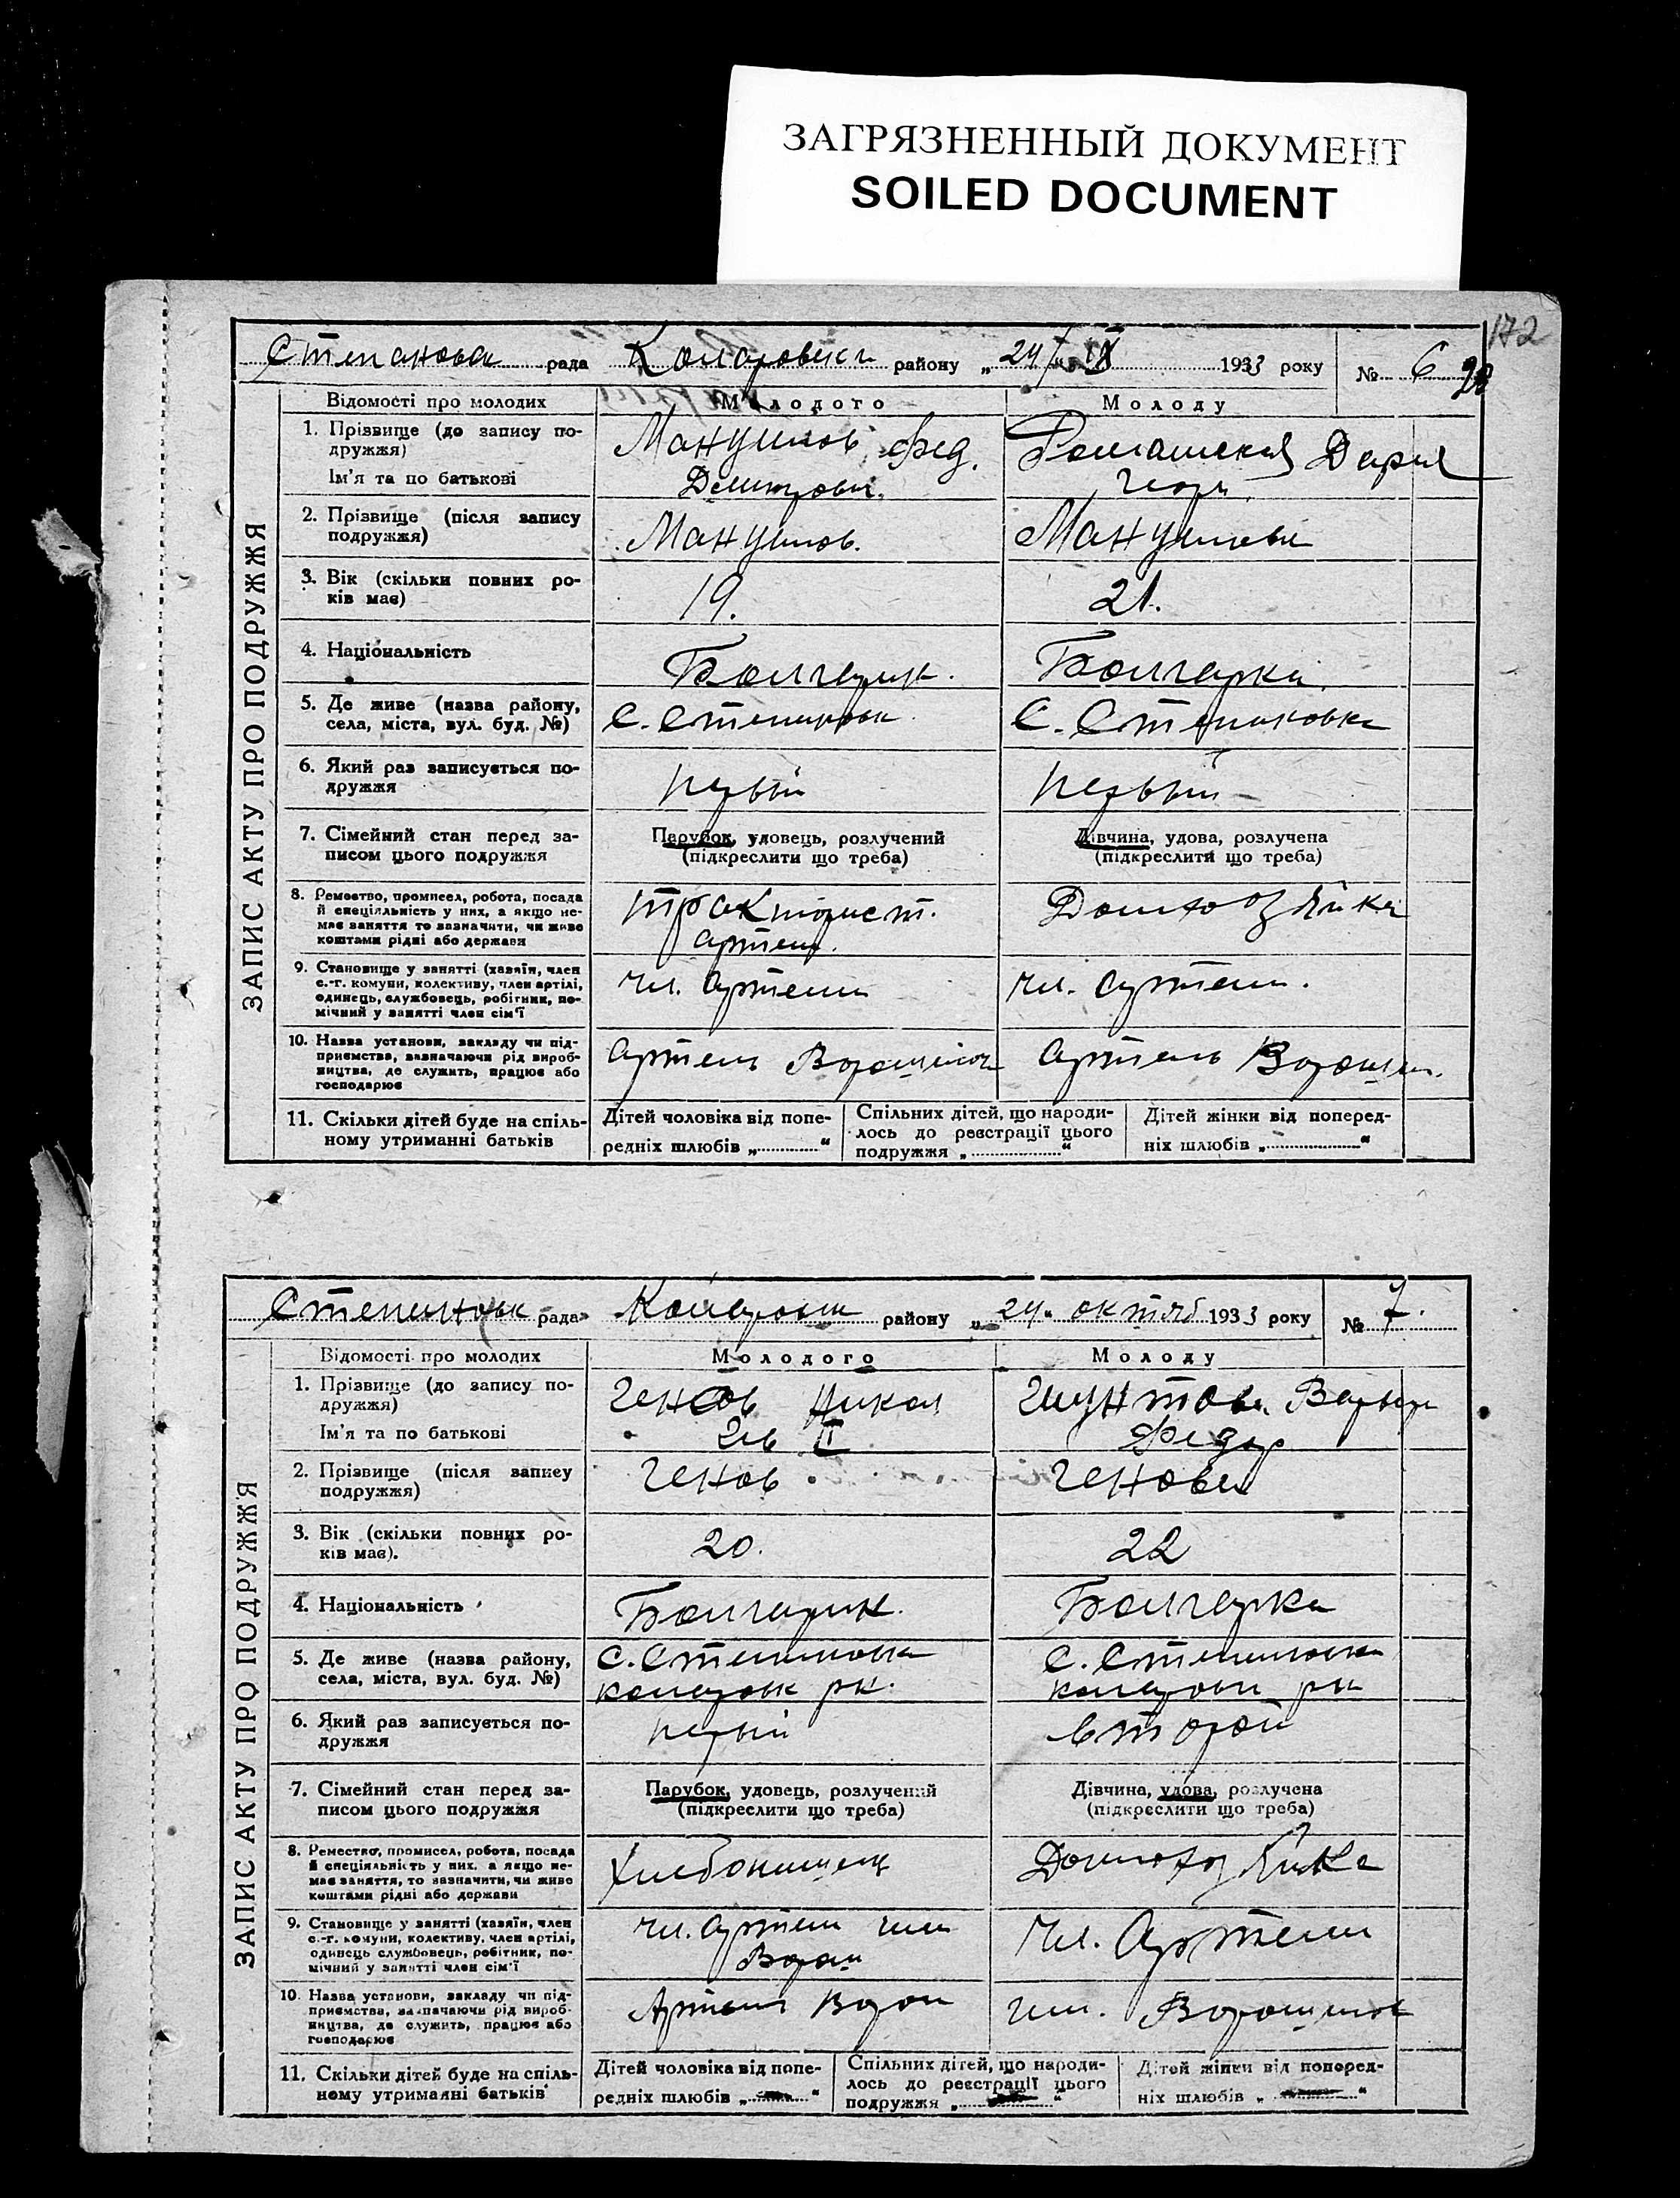 ЗАГРЯЗНЕННЫЙ ДОКУМЕНТ
SOILED DOCUMENT
172
ЗАПИС АКТУ ПРО ПОДРУЖЖЯ
Степановск рада района району „24/ IX 1933 року № 6
Відомості про молодих Молодого Молоду
1. Прізвище (до запису по-
дружжя)
Ім'я та по батькові
Фед. Дарья
2. Прізвище (після запису
подружжя)
3. Вік (скільки повних ро-
ків має)
19. 21.
4. Національність
Болгарин. Болгарка
5. Де живе (назва району,
села, міста, вул. буд. №)
с. Степановк с. Степановка
6. Який раз записується по-
дружжя
первый первый
7. Сімейний стан перед за-
писом цього подружжя
Парубок, удовець, розлучений Дівчина, удова, розлучена
(підкреслити що треба) (підкреслити що треба)
8. Ремество, промисел, робота, посада
й спеціяльність у них, а якщо не-
має заняття то зазначити, чи живе
коштами рідні або держави
тракторист. Домхозяйка
артели.
9. Становище у занятті (хазяїн, член
с.-г. комуни, колективу, член артілі,
одинець, службовець, робітник, по-
мічний у занятті член сім'ї
чл. артели чл. артели.
10. Назва установи, закладу чи під-
приємства, зазначаючи рід вироб-
ництва, де служить, працює або
господарює
артель Ворошилов артель Ворошил.
11. Скільки дітей буде на спіль-
ному утриманні батьків
Дітей чоловіка від попе-
редніх шлюбів „ “
Спільних дітей, що народи-
лось до реєстрації цього
подружжя „ “
Дітей жінки від поперед-
ніх шлюбів „ “
ЗАПИС АКТУ ПРО ПОДРУЖЖЯ
Степановк рада району „24“ октяб 1933 року № 7.
Відомості про молодих Молодого Молоду
1. Прізвище (до запису по-
дружжя)
Ім'я та по батькові
Генов Никол Варвар
II Федор
2. Прізвище (після запису
подружжя)
Генов Генова
3. Вік (скільки повних ро-
ків має).
20. 22
4. Національність
Болгарин. Болгарка
5. Де живе (назва району,
села, міста, вул. буд. №)
с. Степановка с. Степановка
рн. рн
6. Який раз записується по-
дружжя
первый второй
7. Сімейний стан перед за-
писом цього подружжя
Парубок, удовець, розлучений Дівчина, удова, розлучена
(підкреслити що треба) (підкреслити що треба)
8. Ремество, промисел, робота, посада
й спеціяльність у них, а якщо не-
має заняття, то зазначити, чи живе
коштами рідні або держави
Домхозяйка
9. Становище у занятті (хазяїн, член
с.-г. комуни, колективу, член артілі,
одинець службовець, робітник, по-
мічний у занятті член сім'ї
чл. артели им Чл. Артели
Ворош
10. Назва установи, закладу чи під-
приємства, зазначаючи рід вироб-
ництва, де служить, працює або
господарює
Артель Ворош им. Ворошилов
11. Скільки дітей буде на спіль-
ному утриманні батьків
Дітей чоловіка від попе-
редніх шлюбів „ “
Спільних дітей, що народи-
лось до реєстрації цього
подружжя „ “
Дітей жінки від поперед-
ніх шлюбів „ “